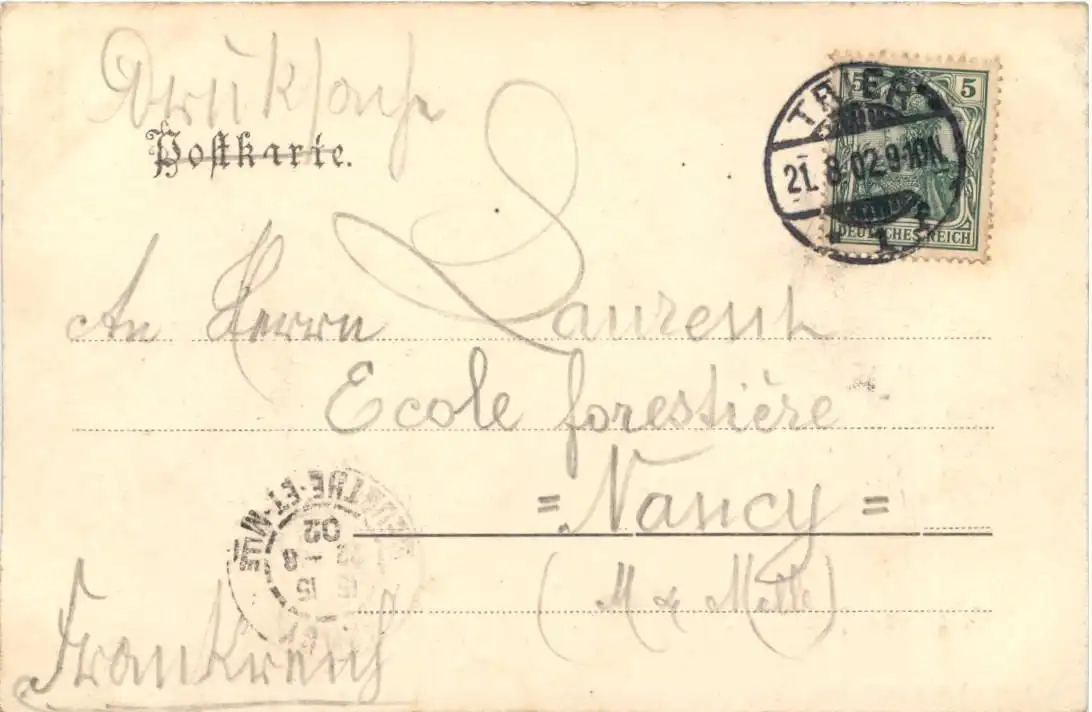 Drucksache
Postkarte.
5 5
TRIER
21.8.02.9-10N.
* 1 f
DEUTSCHES REICH
An Herrn Laurent
Ecole forestière
= Nancy =
(M & Mlle)
MEURTHE-ET-MLLE
15 15
22 - 8
02
Frankreich